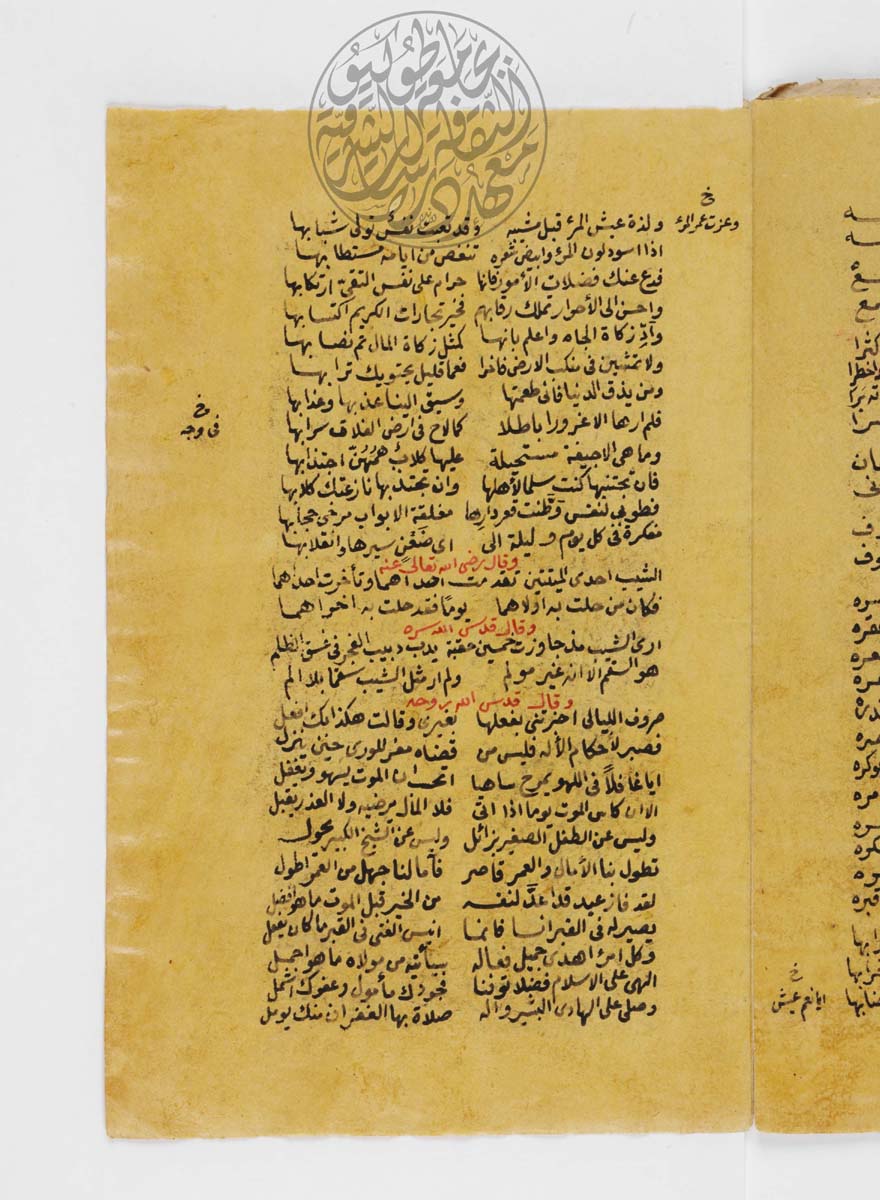 خ
وعزت عمر المرء
ولذة عيش المرء قبل مشيبه وقد تعبت نفس تولى شبابها
اذا اسود لون المرء وابيض شعره تنغص من ايامه مستطابها
فدع عنك فضلات الأمور فانها حرام على نفس التقي ارتكابها
واحسن الى الأحرار تملك رقابهم فخير تجارات الكريم اكتسابها
وآدِّ زكاة الجاه واعلم بانها كمثل زكاة المال تم نصابها
ولا تمشين في منكب الارض فاخرا فعما قليل يحتويك ترابها
ومن يذق الدنيا فانى طعمتها وسيق الينا عذبها وعذابها
فلم ارها الا غرورا باطلا كما لاح في ارض الفلاة سرابها
خ
في وجه
وما هي الا جيفة مستحيلة عليها كلابٌ همهنّ اجتذابها
فان تجتنبها كنت سلما لأهلها وان تجتذبها نازعتك كلابها
فطوبى لنفس وطنت قعر دارها مغلقة الابواب مرخى حجابها
مفكرة في كل يوم وليلة الى اي سيرها وانقلابها
وقال رضى الله تعالى عنه
الشيب احدى الميتتين تقدمت احداهما وتأخرت احداهما
فكان من حلت به اولاهما يومًا فقد حلت به اخراهما
وقال قدس الله سره
ارى الشيب مذ جاوزت خمسين حقبة يدب دبيب الفجر في غسق الظلم
هو السقم الا انه غير مولم ولم ار مثل الشيب سقما بلا الم
وقال قدس الله بروحه
صروف الليالي اخبرتني بفعلها بغيري وقالت هكذا بك افعل
فصبر لأحكام الأله فليس من قضاه مفر للورى حين ينزل
ايا غافلاً في اللهو يمرح ساهيا اتحسب ان الموت يسهو ويغفل
الا ان كاس الموت يوما اذا اتى فلا المال مرضيه ولا العذر يقبل
وليس عن الطفل الصغير بزائل وليس عن الشيخ الكبير محول
تطول بنا الأمال والعمر قاصر فآمالنا جهل من العمر اطول
لقد فاز عبد قد اعدّ لنفسه من الخير قبل الموت ما هو افضل
يصير له في القبر انسا فانما انيس الفتى في القبر ما كان يفعل
وكل امرء اهدى جميل فعاله سيأتيه من مولاه ما هو اجمل
الهى على الاسلام فضلا توفنا فجودك مأمول وعفوك اشمل
وصلى على الهادى البشير واله صلاة بها الغفران منك يومل
خ
ايا نعم عيش